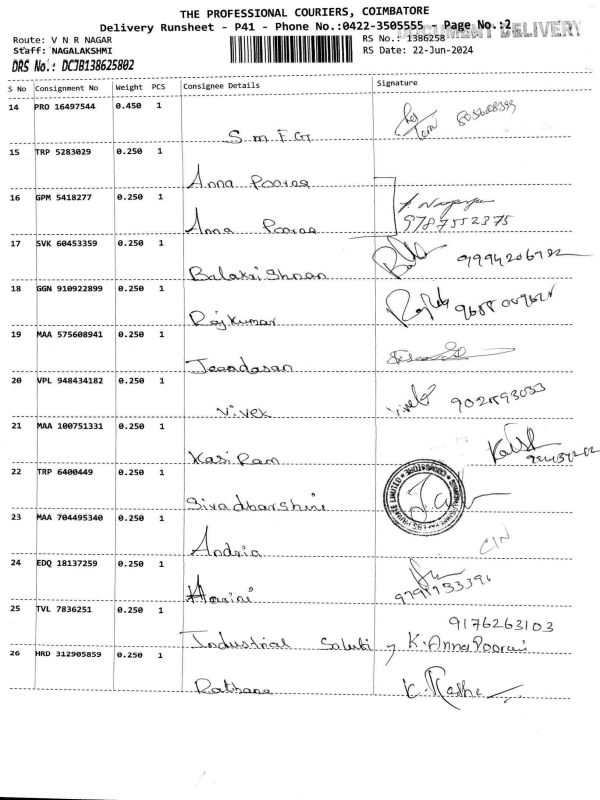 THE PROFESSIONAL COURIERS, COIMBATORE
Delivery Runsheet - P41 - Phone No.:0422-3505555 - Page No.:2
DOCUMENT DELIVERY
Route: V N R NAGAR
RS No.: 1386258
Staff: NAGALAKSHMI
RS Date: 22-Jun-2024
DRS No.: DCJB138625802
S No Consignment No Weight PCS Consignee Details Signature
14 PRO 16497544 0.450 1
S m F G
15 TRP 5283029 0.250 1
Anna Pooraa
16 GPM 5418277 0.250 1
Anna Pooraa
9787552375
17 SVK 60453359 0.250 1
Balakrishnan
18 GGN 910922899 0.250 1
Rajkumar
19 MAA 575608941 0.250 1
20 VPL 948434182 0.250 1
Vivek
21 MAA 100751331 0.250 1
Kasi Ram
22 TRP 6400449 0.250 1
Sivadharshini
23 MAA 704495340 0.250 1
Andria
24 EDQ 18137259 0.250 1
Harini
25 TVL 7836251 0.250 1
9176263103
Industrial K. Anna Poorani
26 HRD 312905859 0.250 1
Rathana K. Radha